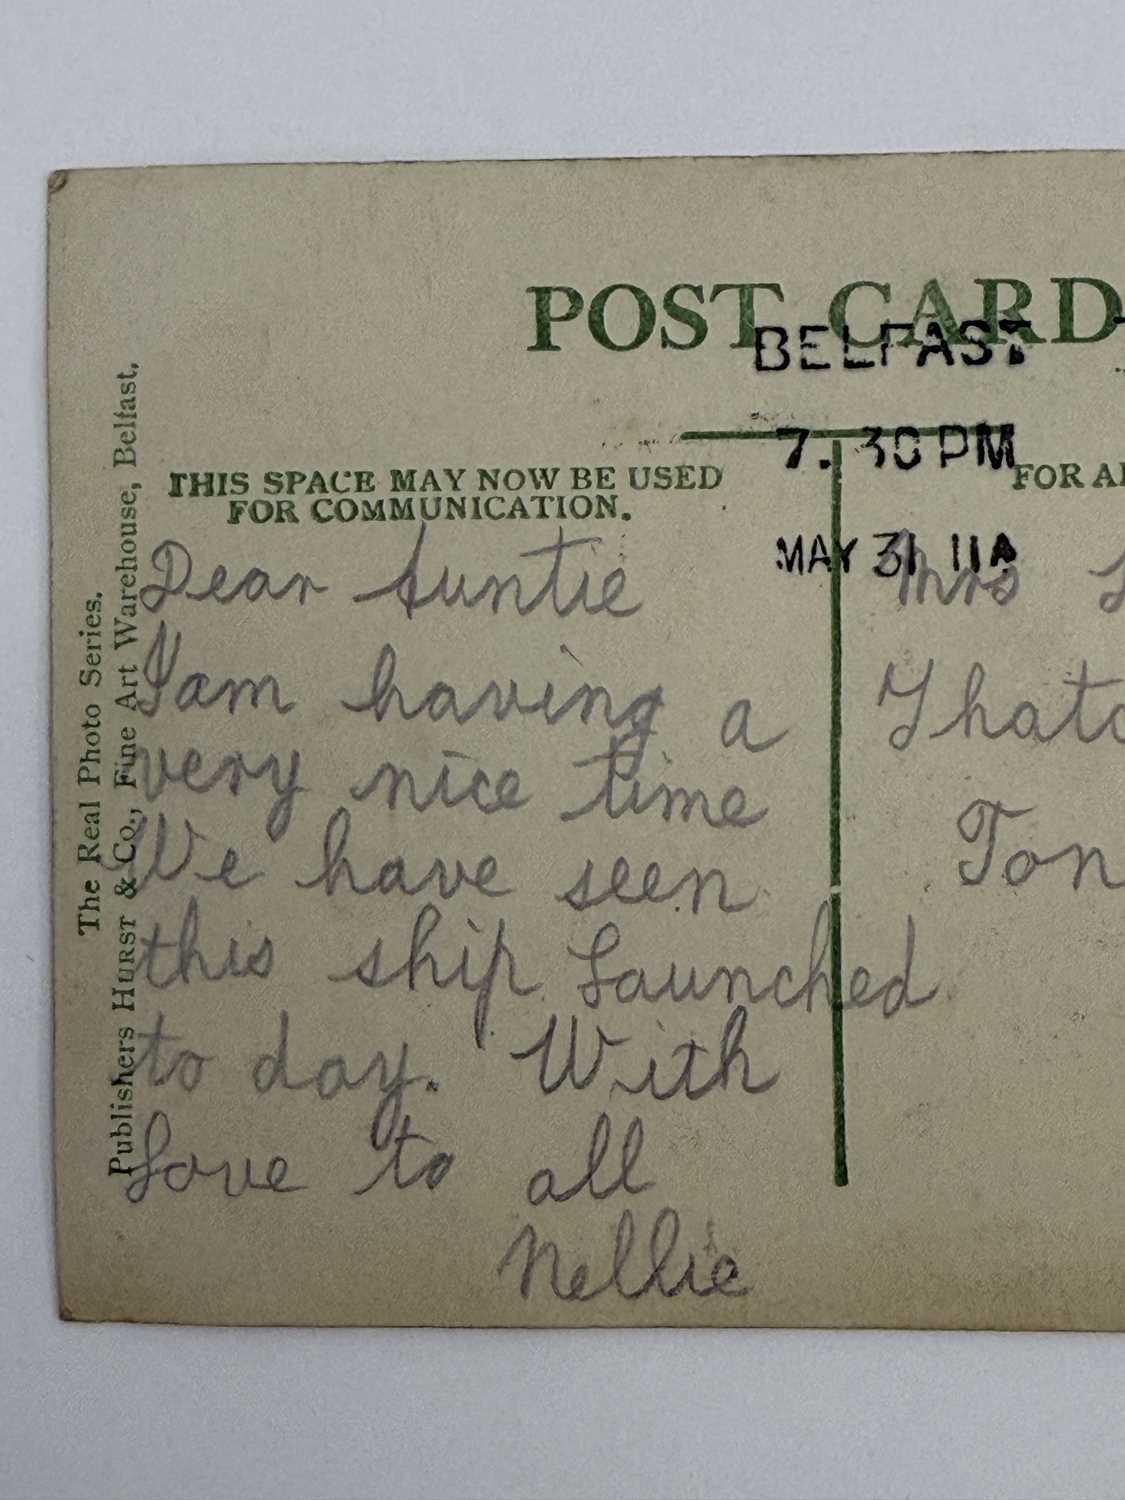 POST CARD
BELFAST
7. 30 PM
MAY 31 11A
THIS SPACE MAY NOW BE USED
FOR COMMUNICATION.
FOR
Dear Auntie
I am having a
very nice time
We have seen
this ship Launched
to day. With
Love to all
Nellie
Mrs
The Real Photo Series.
Publishers HURST & Co., Fine Art Warehouse, Belfast.